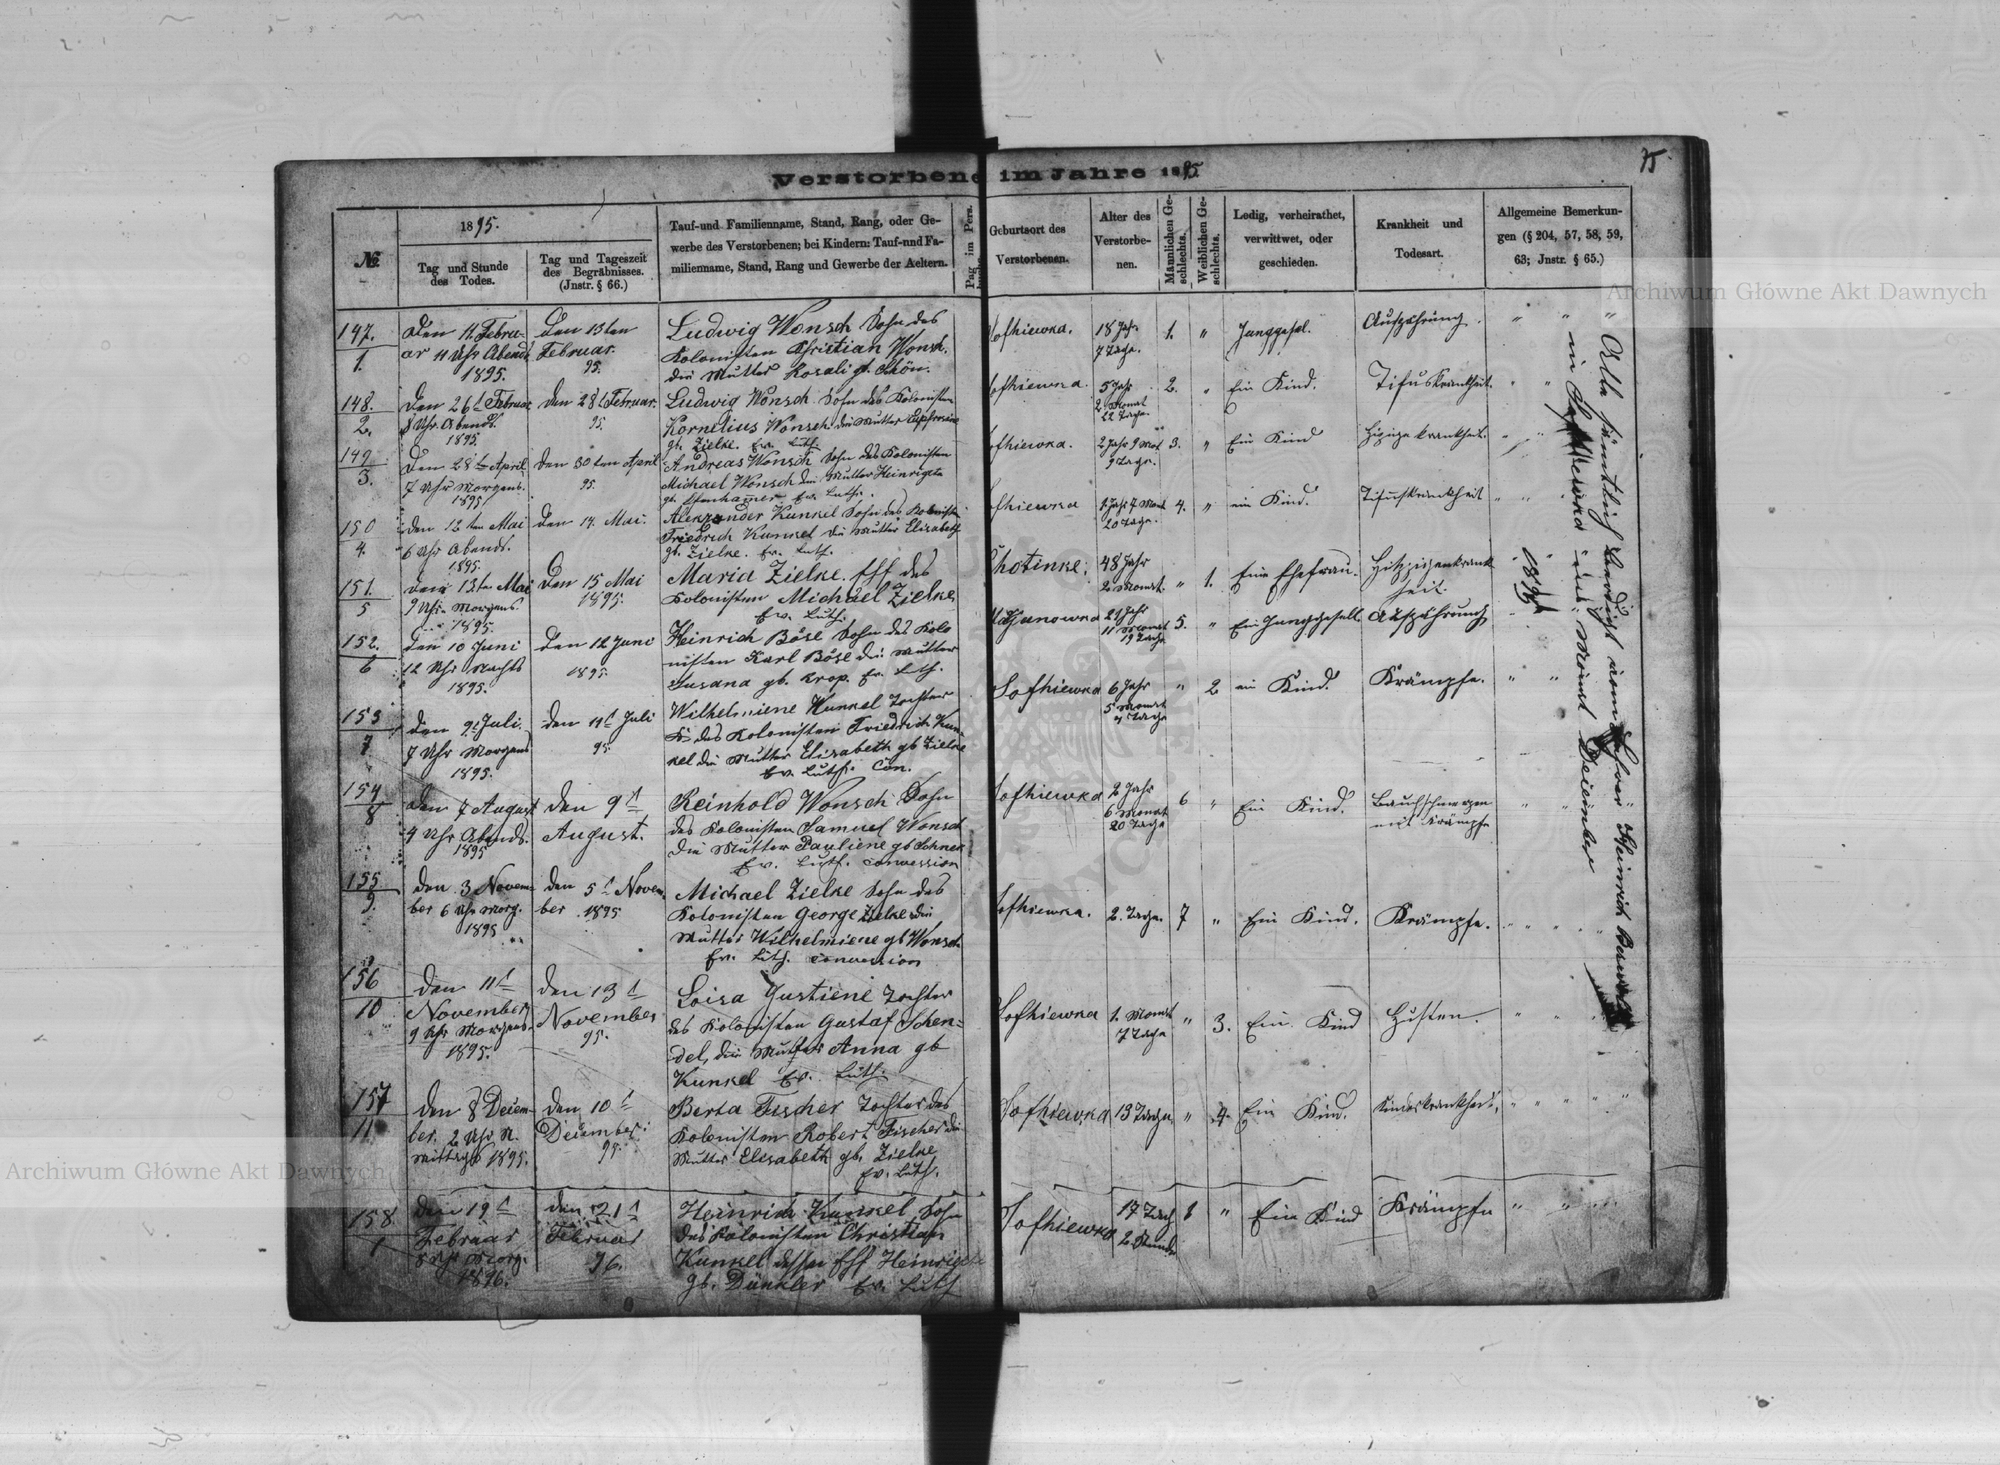 Verstorbene im Jahre 1895.
75
№
1895.
Tag und Stunde
des Todes.
Tag und Tageszeit
des Begräbnisses.
(Jnstr. § 66.)
Tauf-und Familienname, Stand, Rang, oder Ge-
werbe des Verstorbenen; bei Kindern: Tauf-und Fa-
milienname, Stand, Rang und Gewerbe der Aeltern.
Pag im Pers.
Geburtsort des
Verstorbenen.
Alter des
Verstorbe-
nen.
Männlichen Ge-
schlechts.
Weiblichen Ge-
schlechts.
Ledig, verheirathet,
verwittwet, oder
geschieden.
Krankheit und
Todesart.
Allgemeine Bemerkun-
gen (§ 204, 57, 58, 59,
63; Jnstr. § 65.)
147.
1.
Den 11. Febru-
ar 11 Uhr Abends
1895.
Den 13ten
Februar.
95.
Ludwig Wonsch Sohn des
Kolonisten Christian Wonsch.
die Mutter Rosali gb. Schön.
Sofhiewka.
18 Jahr
7 Tage.
1.
"
Junggesel.
Auszehrung.
148.
2.
Den 26t Februar
8 Uhr Abends.
1895.
Den 28t Februar.
95.
Ludwig Wonsch Sohn des Kolonisten
Kornelius Wonsch die Mutter
gb. Zielke. Ev. Luth.
Sofhiewka.
5 Jahr
2 Monat
22 Tage.
2.
"
Ein Kind.
Tifuskrankheit.
149.
3.
Den 28ten April
7 Uhr Morgens.
1895
Den 30ten April
95.
Andreas Wonsch Sohn des Kolonisten
Michael Wonsch die Mutter Heinrigete
gb. Ev. Luth.
Sofhiewka.
2 Jahr 9 Mot
9 Tage.
3.
"
Ein Kind
150
4.
Den 12ten Mai
6 Uhr Abends.
1895.
Den 14. Mai.
Alexzander Kunkel Sohn des Kolonisten
Friedrich Kunkel die Mutter Elisabeth
gb. Zielke. Ev. Luth.
Sofhiewka
20 Tage.
4.
"
ein Kind.
Tifuskrankheit
151.
5
Den 13ten Mai
9 Uhr Morgens
1895.
Den 15 Mai
1895.
Maria Zielke. Eff des
Kolonisten Michael Zielke
Ev. Luth.
48 Jahr
2 Monat.
"
1.
Eine Ehefrau.
152.
6
Den 10 Juni
12 Uhr Nachts
1895.
Den 12 Juni
1895.
Heinrich Böse Sohn des Kolo
nisten Karl Böse die Mutter
Susana gb. Krop. Ev. Luth.
21 Jahr
11 Monat
19 Tage
5.
"
Ein Junggesell
Auszehrung
153
7
Den 9t Juli.
7 Uhr Morgens
1895.
Den 11t Juli
95.
Wilhelmiene Kunkel Tochter
des Kolonisten Friedrich Kun-
kel die Mutter Elisabeth gb Zielke
Ev. Luth. Con.
Sofhiewka
6 Jahr
5 Monat
"
2
ein Kind.
Krämpfe.
154
8
Den 7 August
4 Uhr Abends.
1895
Den 9t
August.
Reinhold Wonsch Sohn
des Kolonisten Samuel Wonsch
Die Mutter Pauliene gb
Ev. Luth. Convession
Sofhiewka
2 Jahr
6 Monat
20 Tage
6
"
Ein Kind.
Bauchschmerzen
mit Krämpfe
155
9.
Den 3 Novem-
ber 6 Uhr Morg.
1895
Den 5t Novem
ber 1895
Michael Zielke Sohn des
Kolonisten George Zielke die
Mutter Wilhelmiene gb Wonsch
Ev. Luth. Convession
Sofhiewka.
2. Tage.
7
"
Ein Kind.
Krämpfe.
156
10
Den 11t
November
9 Uhr Morgens.
1895.
Den 13t
November
95.
Loisa Gustiene Tochter
des Kolonisten Gustaf Schen-
del, die Mutter Anna gb
Kunkel Ev. Luth.
Sofhiewka
1. Monat
7 Tage
"
3.
Ein Kind
Husten.
157
11.
Den 8 Decem-
ber. 2 Uhr N.
mittags 1895.
Den 10t
December.
95.
Berta Fischer Tochter des
Kolonisten Robert Fischer die
Mutter Elisabeth gb. Zielke
Ev. Luth.
Sofhiewka
13 Tage
"
4.
Ein Kind.
158
1
Den 19t
Februar
8 Uhr Morg.
1896.
Den 21t
Februar
96.
Heinrich Kunkel Sohn
des Kolonisten Christian
Kunkel dessen Eff Heinrigete
gb. Dünkler Ev. Luth
Sofhiewka
17 Tage
2 Stunde
1
"
Ein Kind
Krämpfe
Alle sämtlich beerdigt vom Lehrer Heinrich
in Sofhiewka im Monat December
1895
Archiwum Główne Akt Dawnych
Archiwum Główne Akt Dawnych